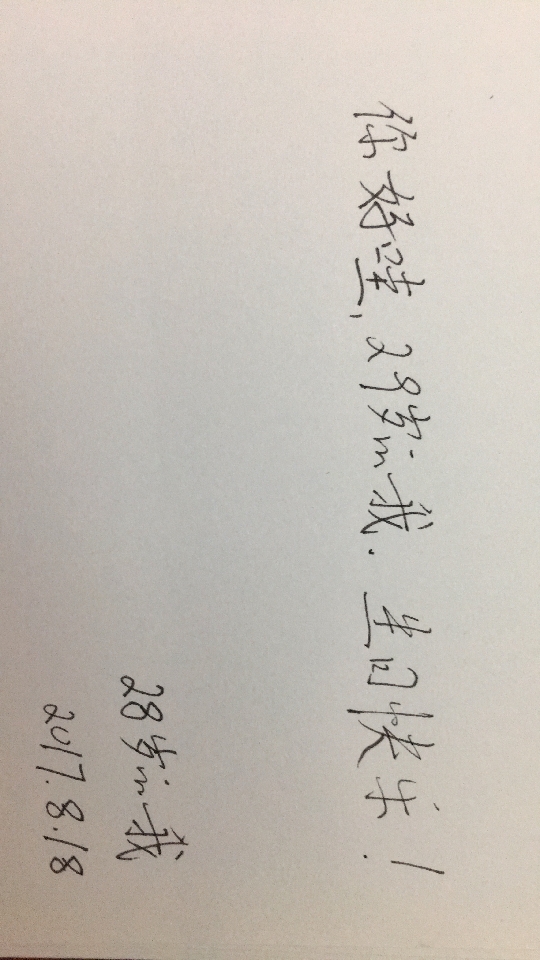 你好哇，29岁的我．生日快乐！
28岁的我
2017.8.18